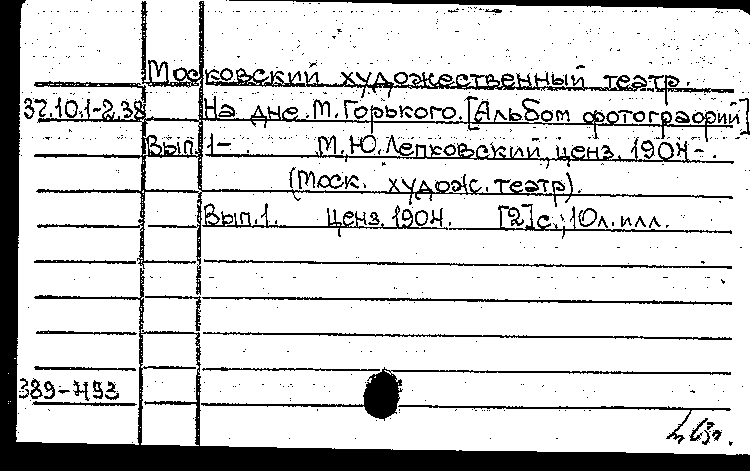 Московский художественный театр.
37.10.1-2.38 На дне. М. Горького. [Альбом фотографий]
Вып. 1- . М., Ю. Лепковский, ценз. 1904-.
(Моск. худож. театр).
Вып. 1. Ценз. 1904. [2] с.; 10 л. илл.
389-493